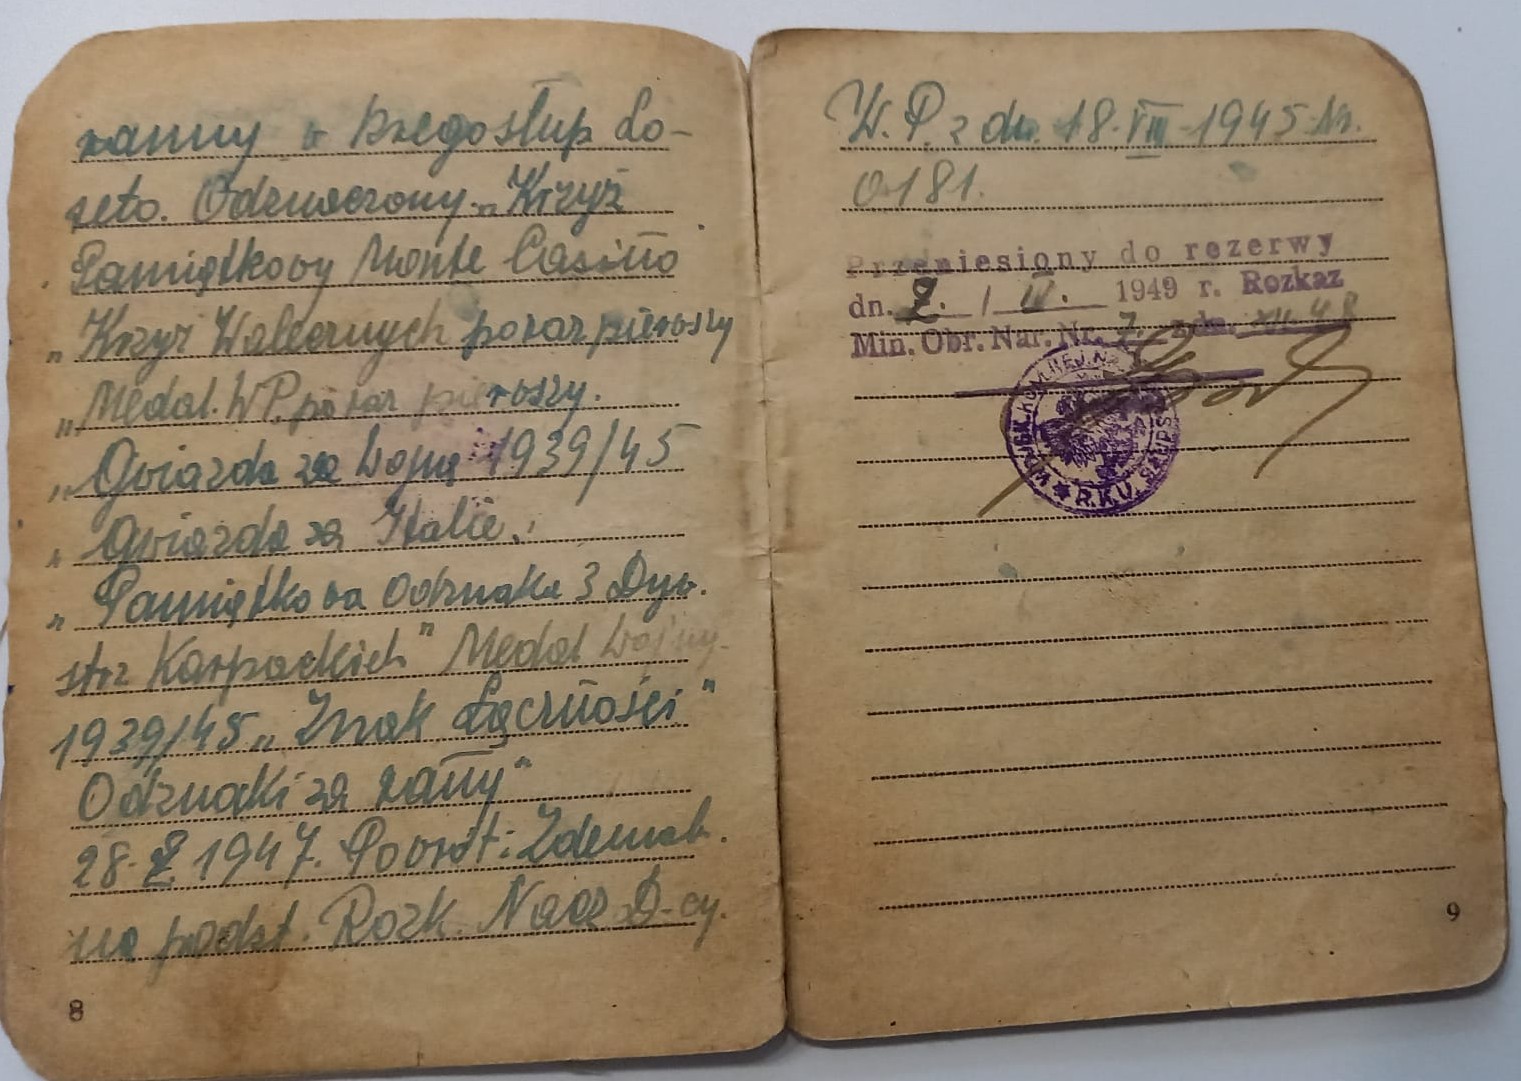 ranny w kręgosłup Lo-
reto. Odznaczony "Krzyż
Pamiątkowy Monte Casino
" Krzyż Walecznych poraz pierwszy
"Medal. WP. po raz pierwszy.
"Gwiazda za Wojnę 1939/45
" Gwiazda za Italie.
" Pamiątkowa Odznaka 3 Dyw.
strz Karpackich" Medal Wojny
1939/45 " Znak Łączności"
Odznaki za rany"
28. 1947. Powrót: Zdemob.
na podst. Rozk. Nacz D-cy.
8
W. P. z dn. 18. VIII 1945 Nr.
0181.
Przeniesiony do rezerwy
dn. 2. / IV. 1949 r. Rozkaz
Min. Obr. Nar. Nr. 7. z dn. XII. 48
KOM. REJ. N
R.K.U. SŁUPS
9